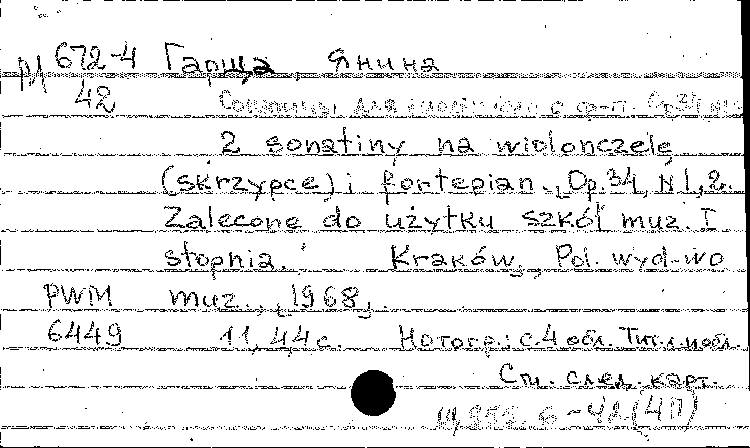 М 672-4 Гарща, Янина
42 Сонатины для виолончели с ф-п. Op.34
2 sonatiny na wiolonczelę
(skrzypce) i fortepian. Op.34, N 1, 2.
Zalecone do użytku szkół muz. I
stopnia. Kraków, Pol. wyd-wo
PWM muz., [1968].
6449 11, 4,4 с. Нотогр.: с.4 обл. Тит.л. и обл.
См. след. карт.